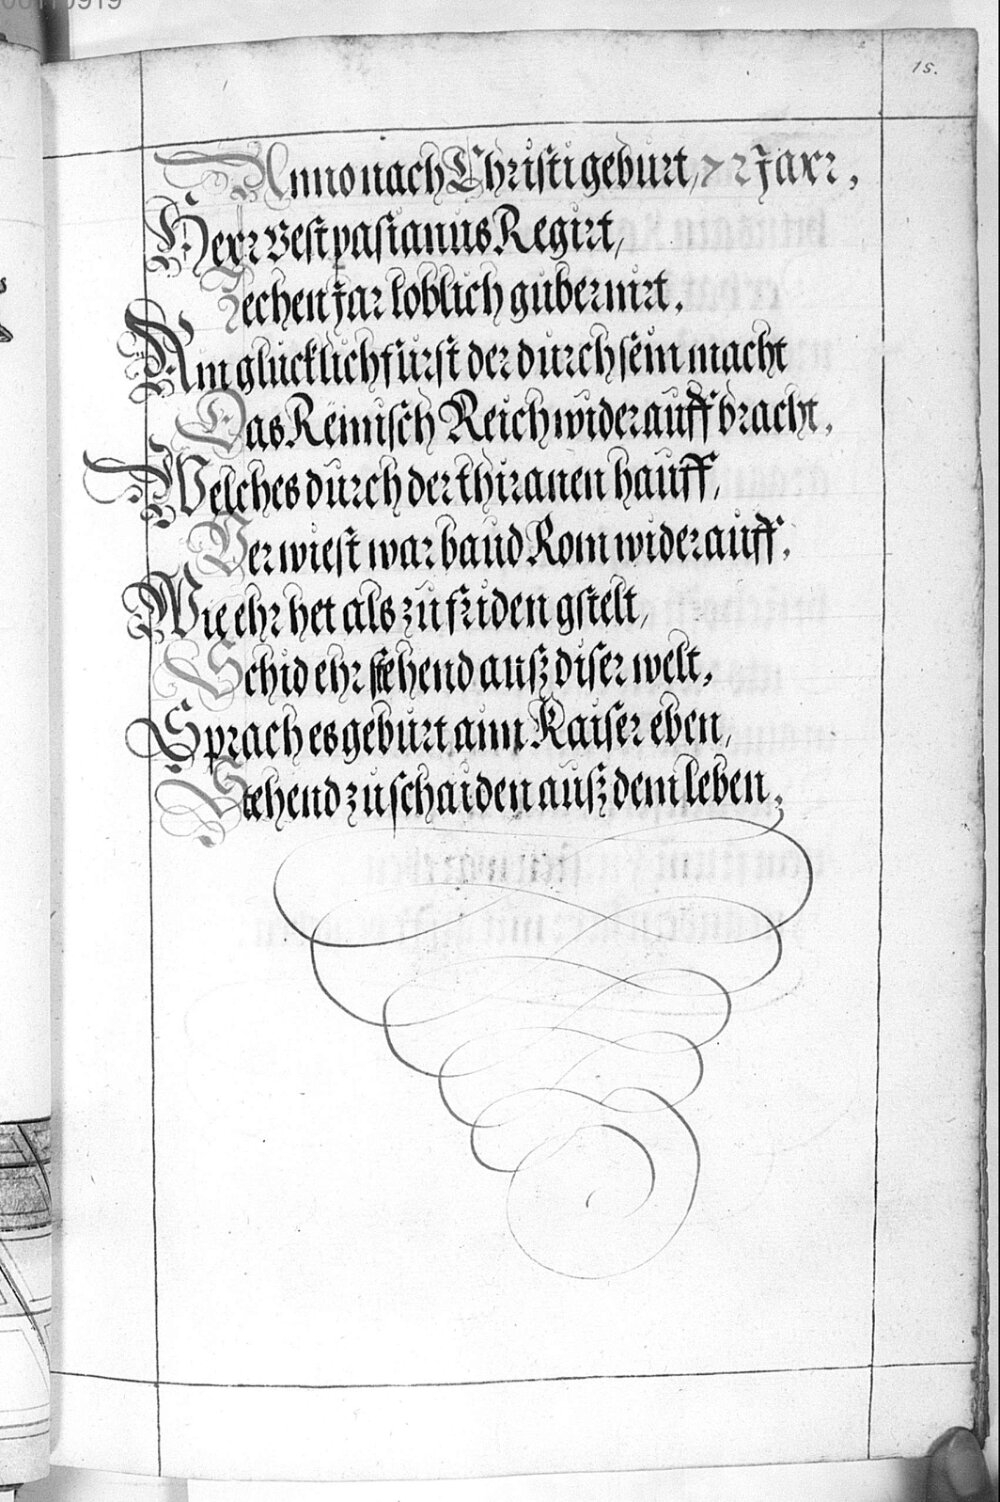 15.
Anno nach Christi geburt, 72 Jaxr,
Hexr Vestpasianus Regirt,
Zechen Jar loblich gubernirt,
Ain glücklich fürst der durch sein macht
Das Römisch Reich wider auff bracht,
Welches durch der thiranen hauff,
Ver wiest war baud Rom wider auff,
Wie ehr het als zu friden gstelt,
Schid ehr stehend auß diser welt,
Sprach es geburt ainn Kaiser eben,
Stehend zu schaiden auß dem leben,